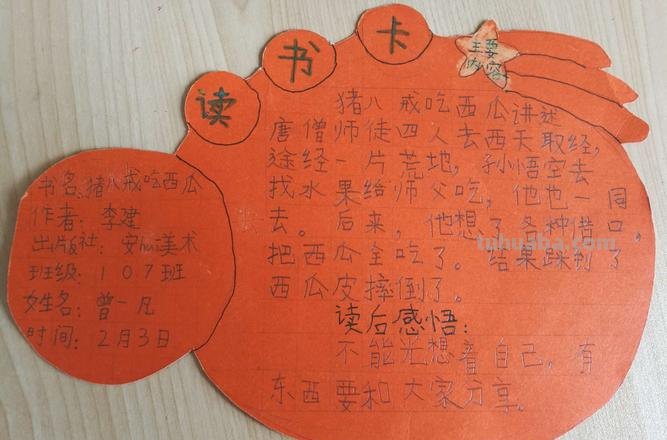 读书卡
主要
内容
猪八戒吃西瓜讲述
唐僧师徒四人去西天取经,
途经一片荒地,孙悟空去
找水果给师父吃,他也一同
去。后来,他想了各种借口,
把西瓜全吃了。结果踩到了
西瓜皮摔倒了。
读后感悟:
不能光想着自己,有
东西要和大家分享。
书名:猪八戒吃西瓜
作者:李建
出版社:安hui美术
班级:107班
姓名:曾一凡
时间:2月3日
tuhuaba.com